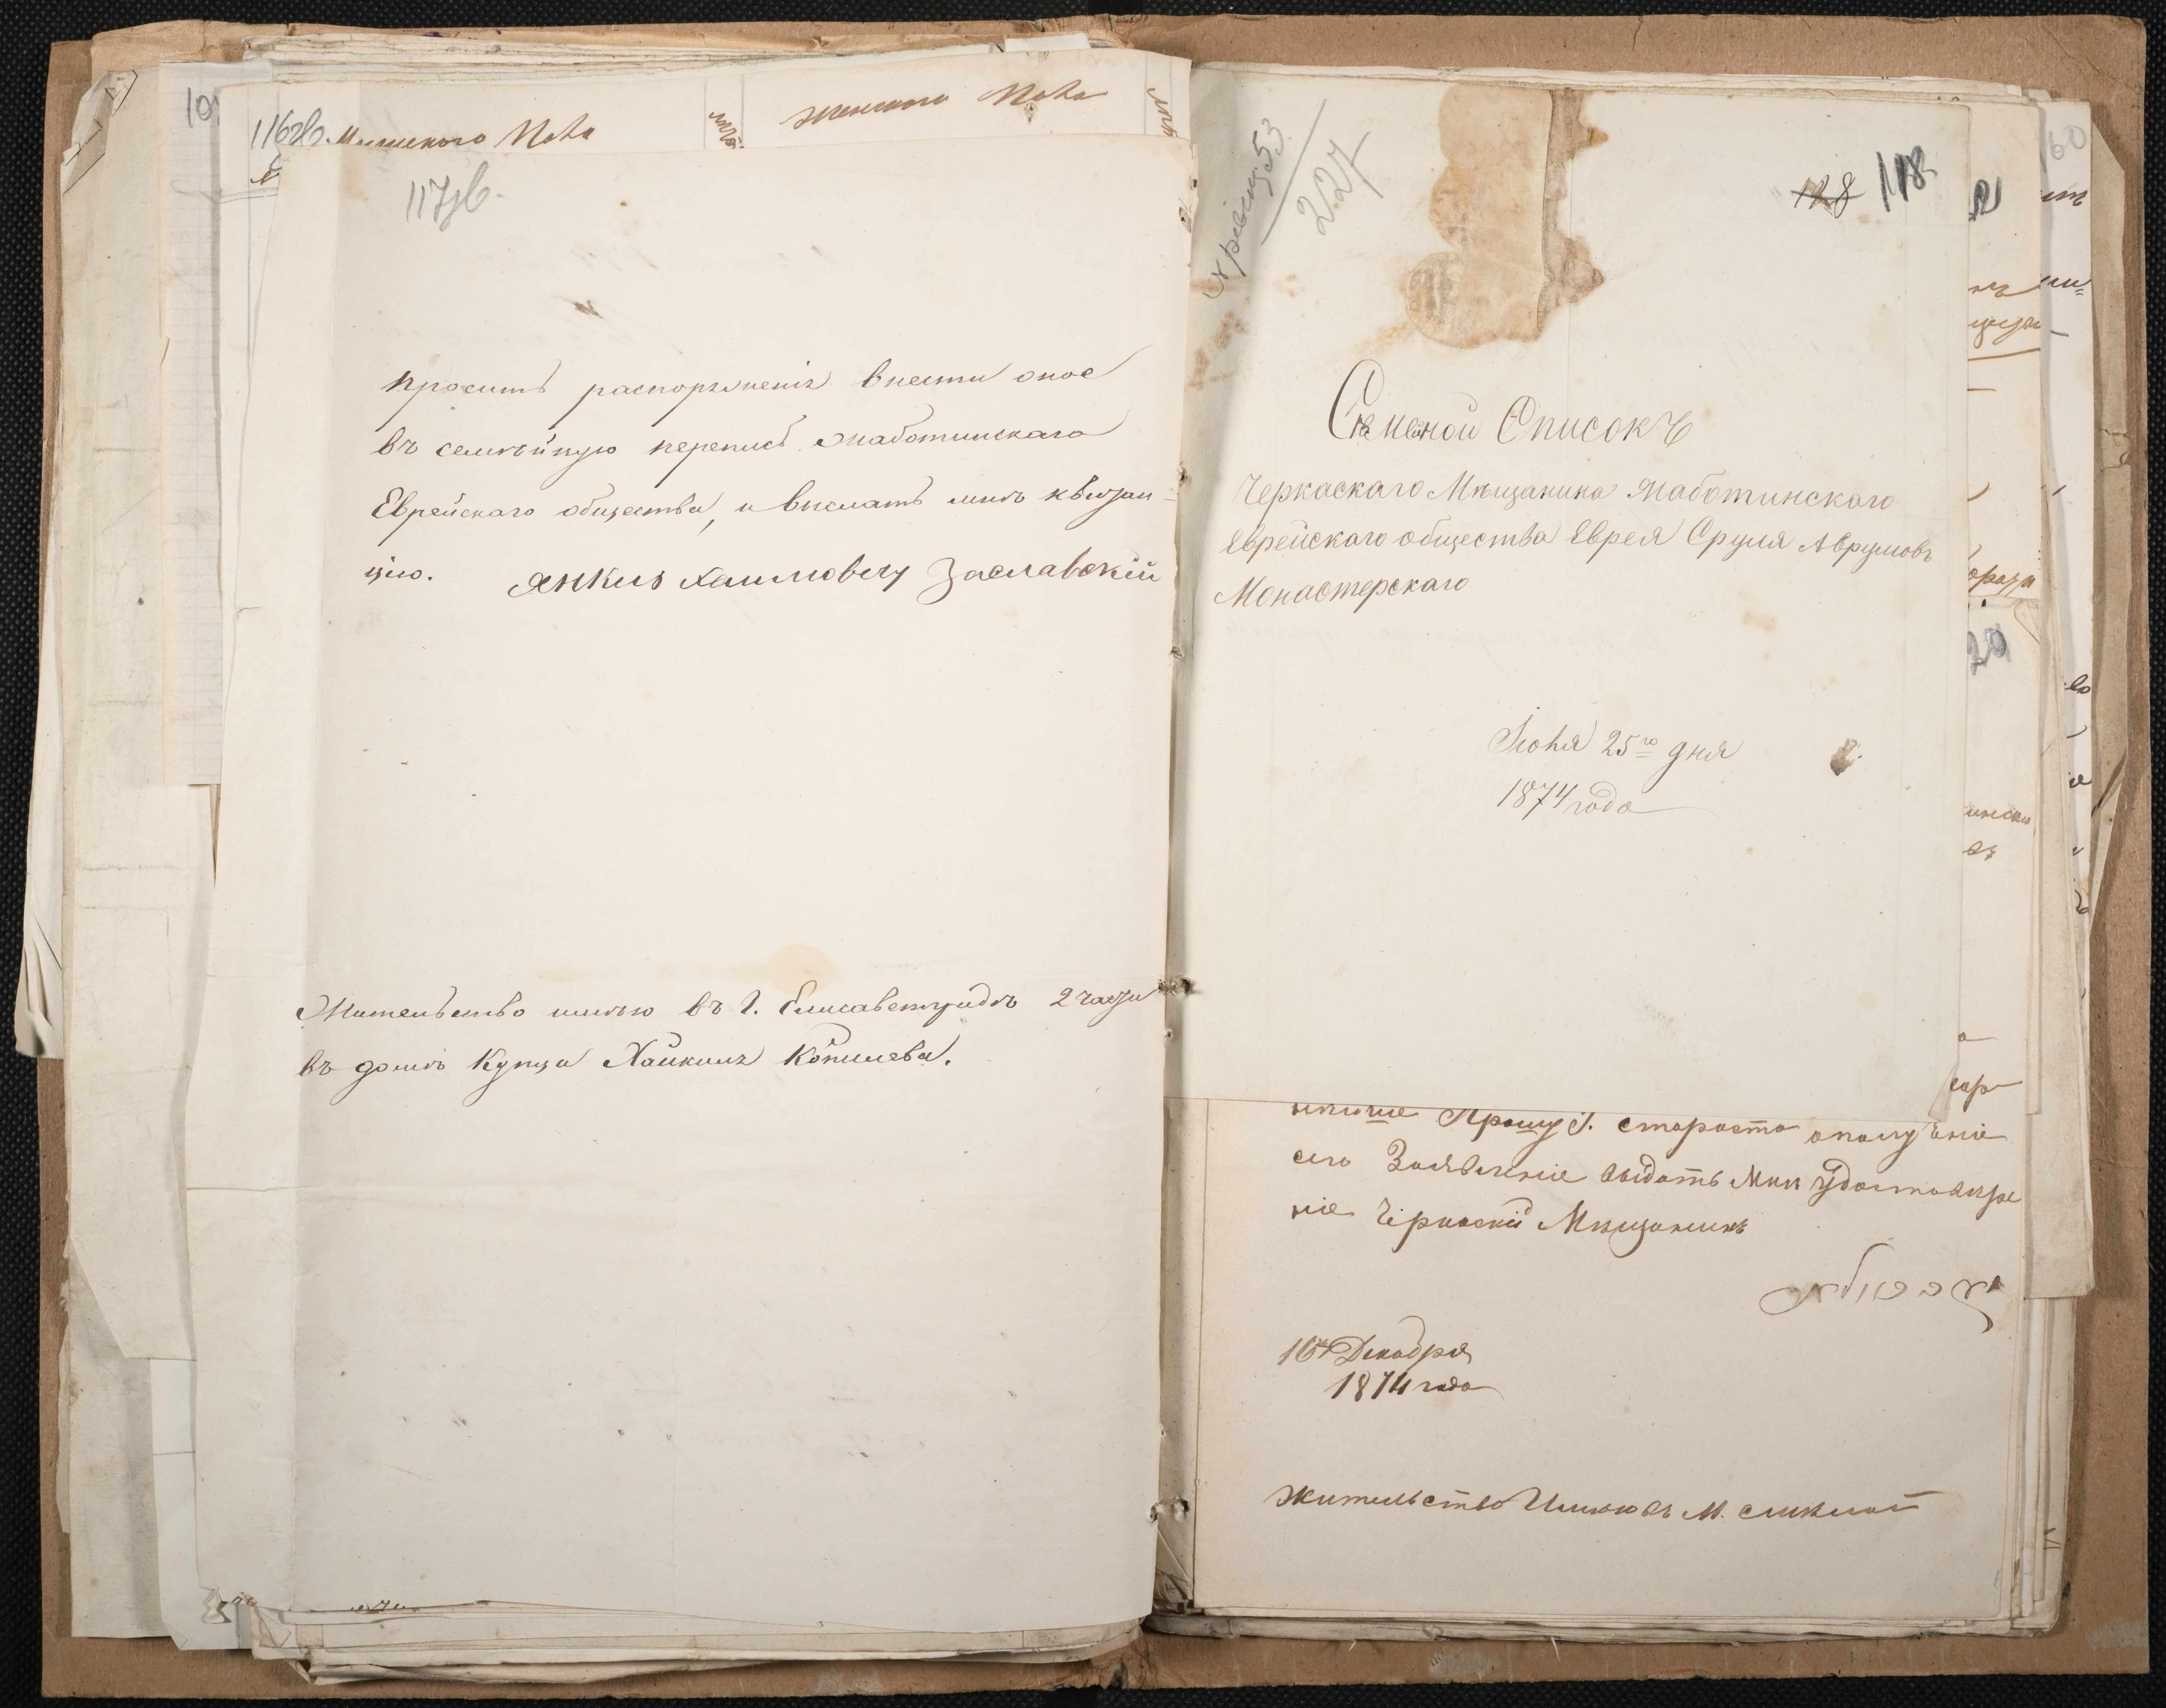 116 об. Мужескаго Пола
лѣта
женского Пола
117 об.
просить распоряженія внести оное
въ семѣйную перепись Жаботинскаго
Еврейскаго общества, и выслать мнѣ квитан-
цію. Янкиль Хаимовичъ Заславскій
Жительство имѣю въ г. Елисаветградѣ 2 части
въ домѣ Купца Хаикиля Копшева.
53
227
128 118
Сѣмейной Списокъ
Черкаскаго Мѣщанина Жаботинскаго
Еврейскаго общества Еврея Сруля Аврумовъ
Монастерскаго
Іюня 25го дня
1874 года
Прошу г. староста о получѣніе
сего Заявленіе выдать Мнѣ удостовѣре
ніе Чѣркаскій Мѣщанинъ
16го Декабря
1874 года
жительство Имѣю въ М. смѣлой